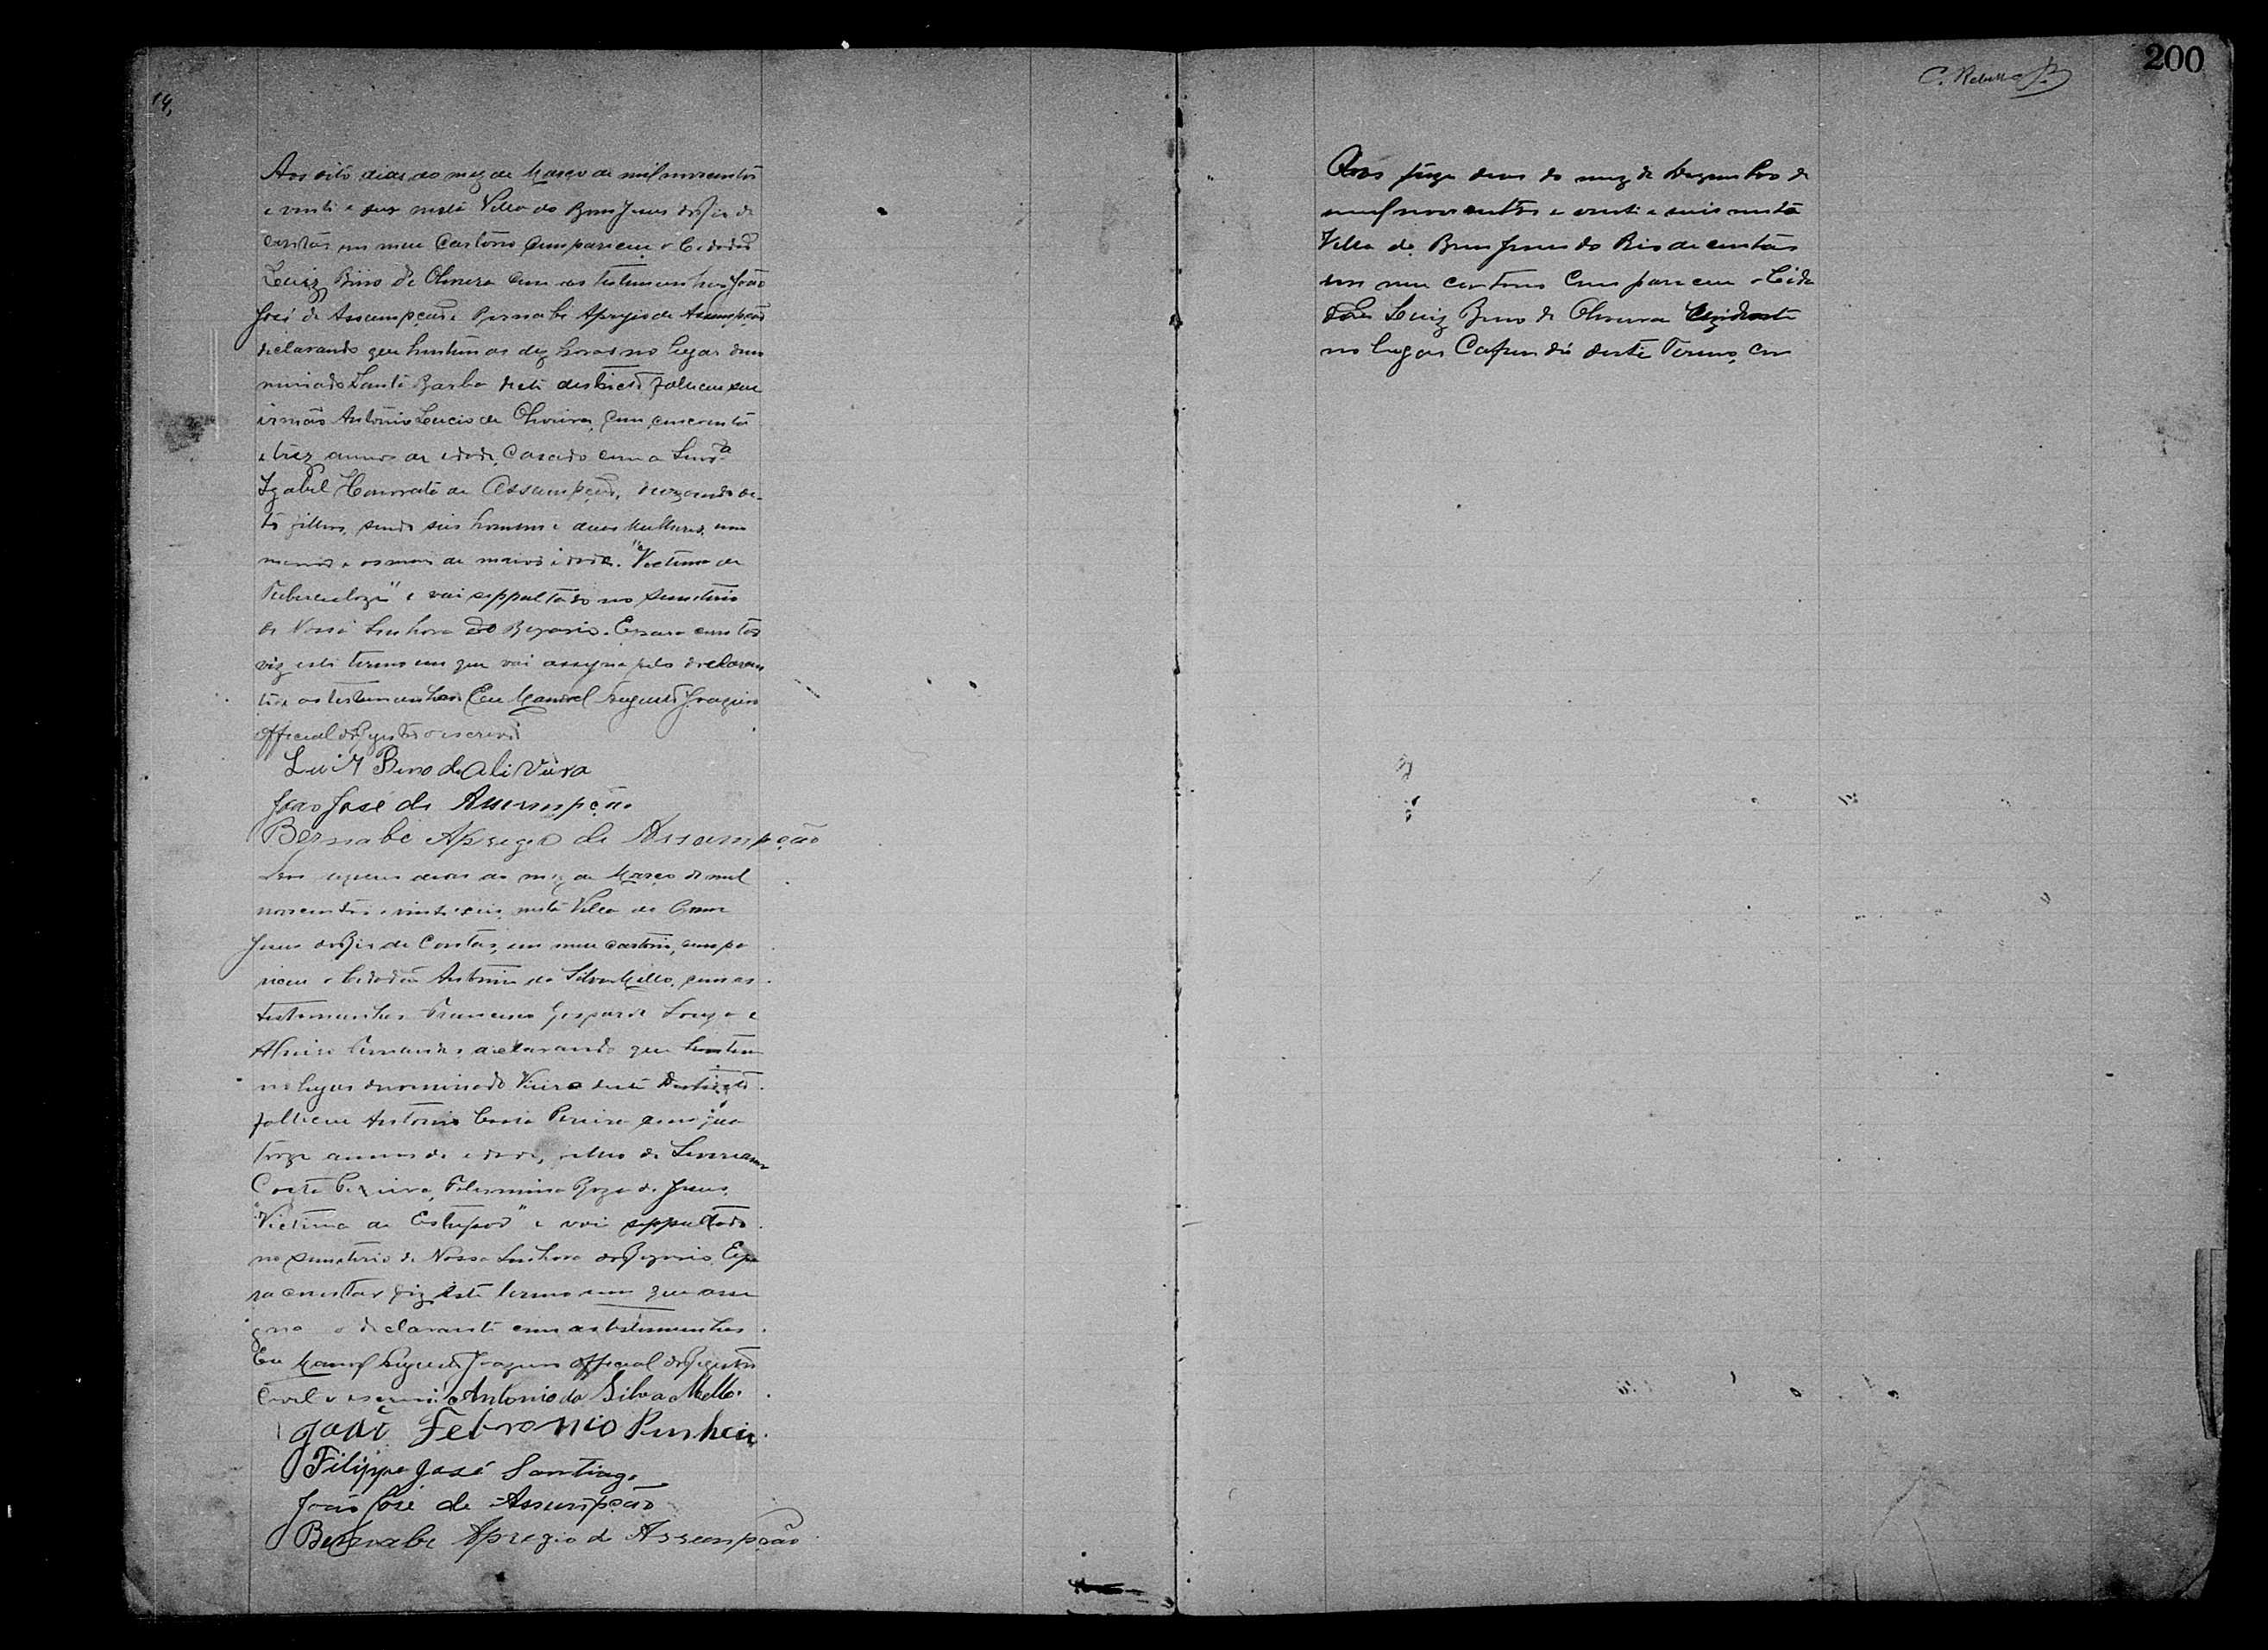 14,
Aos oito dias do mez de Março de mil novecentos
e vinti e seiz nesta Villa do Bom Jesus do Rio de
Contas em meu Cartorio compareceu o Cidadão
Luiz Bino de Oliveira com as testemunhas João
José de Assumpção e Bernabé Aprigio de Assumpção
declarando que hontem as dez horas no lugar deno
minado Santa Barba deste districto falleceu seu
irmão Antonio Lucio de Oliveira, com cincoenta
e trez annos de idade, Casado com a Senr.ª
Izabel Honorata de Assumpção, deixando oi-
to filhos, sendo seis homens e duas Mulheres, um
menor e os mais de maior idade. "Victima de
Tuberculoze" e vai seppultado no Semiterio
de Nossa Senhora do Rozario. E para constar
fiz este termo em que vai assigna pelo declaran
te e as testemunhas Eu Manoel Joaquim
official do Registro o escrevi
Luiz Bino de Oliveira
João José de Assumpção
Bernabe Apregio de Assumpção
dias do mez de Março de mil
novecentos e vinte e seis nesta Villa de Bom
Jesus do Rio de Contas, em meu cartorio, compa
riceu o Cidadão Antonio da Silva Mello, com as
testemunhas Francisco Gaspar de Souza e
declarando que hontem
no lugar denominado Vieira deste Districto
falleceu Antonio Costa Pereira com qua
torze annos de idade, filho de
Costa Pereira, Felermina Roza de Jesus,
"Victima de Estupor" e vai seppultado
no Semiterio de Nossa Senhora do Rozario E pa
ra constar fiz este termo em que assi
gna o declarante com as testemunhas
Eu Manoel Joaquim official do Registro
Civil o escrevi. Antonio da Silva Mello.
João Febronio Pinheiro
Filippe José Santiago
João José de Assumpção
Bernabe Apregio de Assumpção
200
C. Rebello
Aos treze dias do mez de Dezembro de
mil novecentos e vinti e seis nesta
Villa do Bom Jesus do Rio de contas
em meu cartorio Compareceu o Cida
dão Luiz Bino de Oliveira rezidente
no lugar Cafundó deste Termo, com